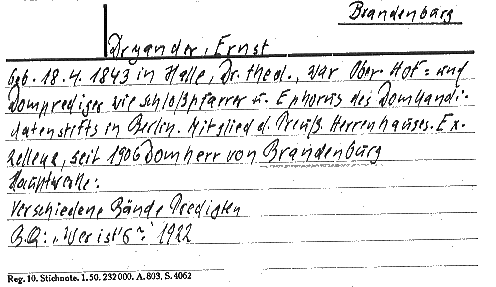 Brandenburg
Dryander, Ernst
geb. 18.4. 1843 in Halle, Dr. theol., war Ober-Hof= und
Domprediger wie Schloßpfarrer u. Ephorus des Domkandi-
datenstifts in Berlin. Mitglied d. Preuß. Herrenhauses. Ex-
zellenz, seit 1906 Domherr von Brandenburg
Hauptwerke:
Verschiedene Bände Predigten
B.Q.: „Wer ist's?" 1922
Reg. 10. Stichnote. 1. 50. 232000. A. 803. S. 4062